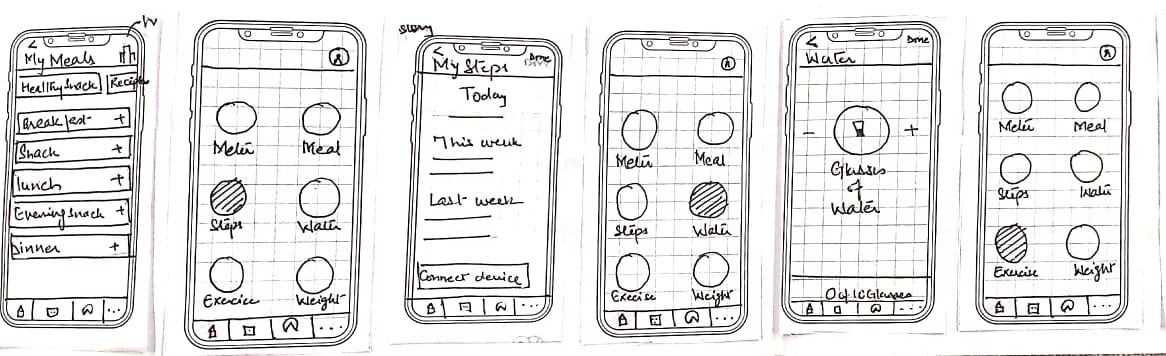 My Meals
Healthy snack
Recipe
Breakfast +
Snack +
lunch +
Evening snack +
Dinner +
...
Meal
Steps
Water
Exercise
Weight
...
story
< Done
My Steps
Today
This week
Last week
Connect device
...
Meal
Steps
Water
Exercise
Weight
...
< Done
Water
- +
Glasses
of
Water
...
Meal
Steps
Water
Exercise
Weight
...